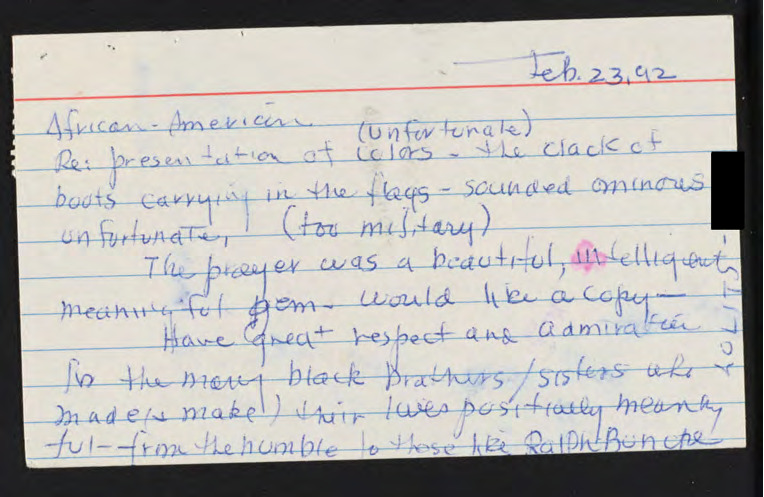 Feb. 23, 92
African-American
(unfortunate)
Re: presentation of colors - the clack of
boots carrying in the flags - sounded ominous
unfortunate, (too military)
The prayer was a beautiful, intelligent
meaningful gem. Would like a copy—
Have great respect and admiration
for the many black brothers/sisters who
made (& make!) their lives positively meaning
ful - from the humble to those like Ralph Bunche